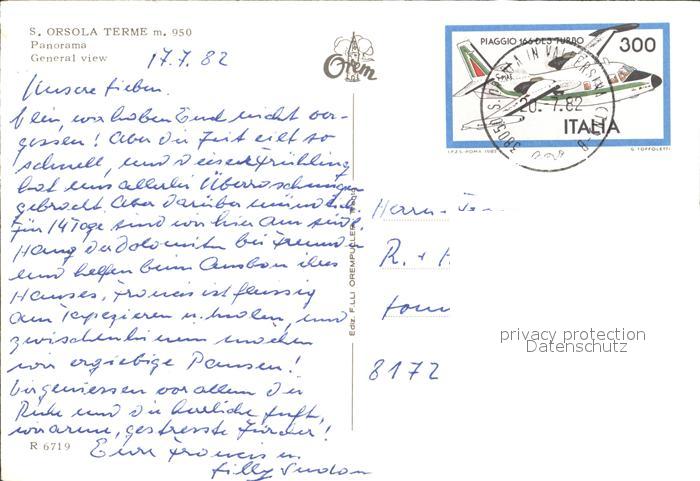 S. ORSOLA TERME m. 950
Panorama
General view
17.7.82
Orem
PIAGGIO 166 DL3 TURBO
300
ITALIA
I.P.Z.S. ROMA 1982
G. TOFFOLETTI
20.7.82
38050 S. ORSOLA IN VALFERSINA
Unsere Lieben.
Nein, wir haben Euch nicht ver-
gessen! Aber die Zeit eilt so
schnell, und dieser Frühling
hat uns allerlei Überraschungen
gebracht. Aber darüber mündlich.
Für 14 Tage sind wir hier am
Hang der Dolomiten bei Freunden
und helfen beim Ausbau ihres
Hauses, Francis ist fleissig
am Tapezieren u. malen, und
zwischenhinein machen
wir ergiebige Pausen!
Wir geniessen vor allem die
Ruhe und die herrliche Luft,
wir arme, gestresste Zürcher!
Eure Francis u.
Herrn
R. + 
8172
Ediz. F.LLI OREMPULLER
R 6719
privacy protection
Datenschutz